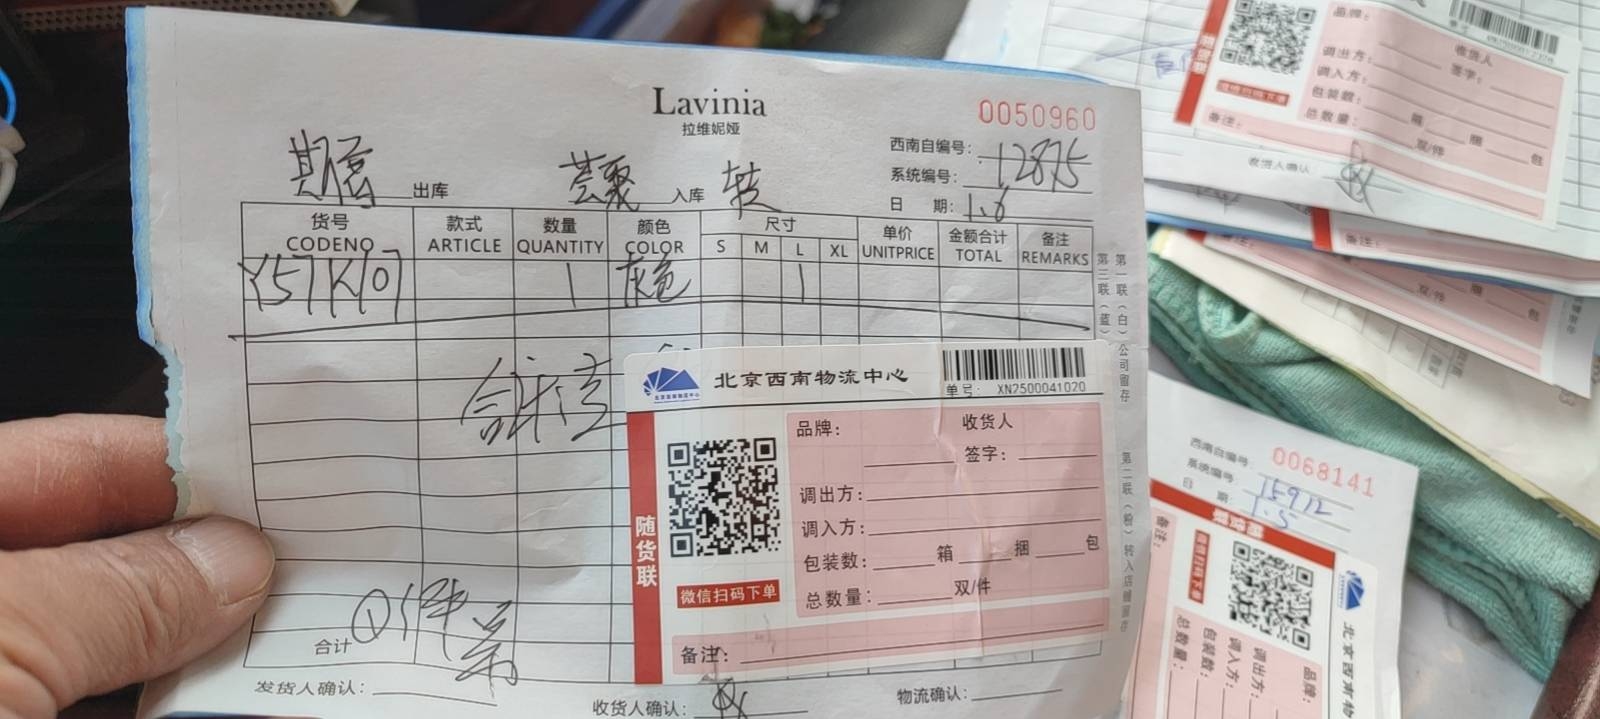 Lavinia
拉维妮娅
0050960
西南自编号: 12875
系统编号:
日 期: 1.6
出库 荟聚 入库 转
货号 款式 数量 颜色 尺寸 单价 金额合计 备注
CODENO ARTICLE QUANTITY COLOR S M L XL UNITPRICE TOTAL REMARKS
Y57K107 1 灰色 1
第一联(白)公司留存
第二联(粉)转入店铺留存
第三联(蓝)
北京西南物流中心
单号: XN2500041020
随货联
微信扫码下单
品牌: 收货人
签字:
调出方:
调入方:
包装数: 箱 捆 包
总数量: 双/件
备注:
合计
发货人确认:
收货人确认:
物流确认:
品牌: 收货人
签字:
调出方:
调入方:
包装数: 箱 捆 包
总数量: 双/件
备注:
收货人确认
双/件
0068141
15912
1.5
备注:
北京西南物
品牌:
调出方:
调入方:
包装数:
总数量: